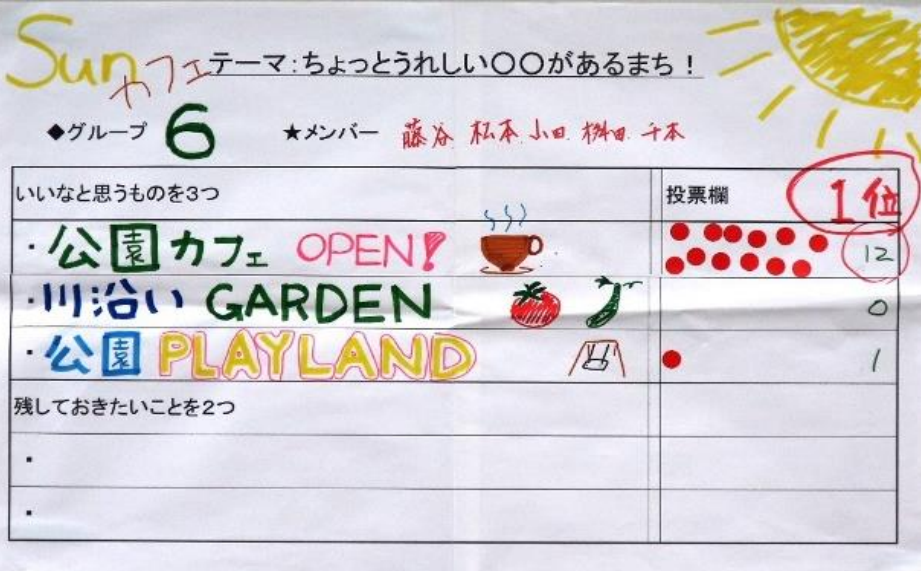 Sunカフェ
テーマ:ちょっとうれしい〇〇があるまち!
◆グループ 6 ★メンバー 藤谷 松本 小田 桝田 千本
いいなと思うものを3つ 投票欄 1位
・公園カフェ OPEN! 12
・川沿い GARDEN 0
・公園 PLAYLAND 1
残しておきたいことを2つ
・
・